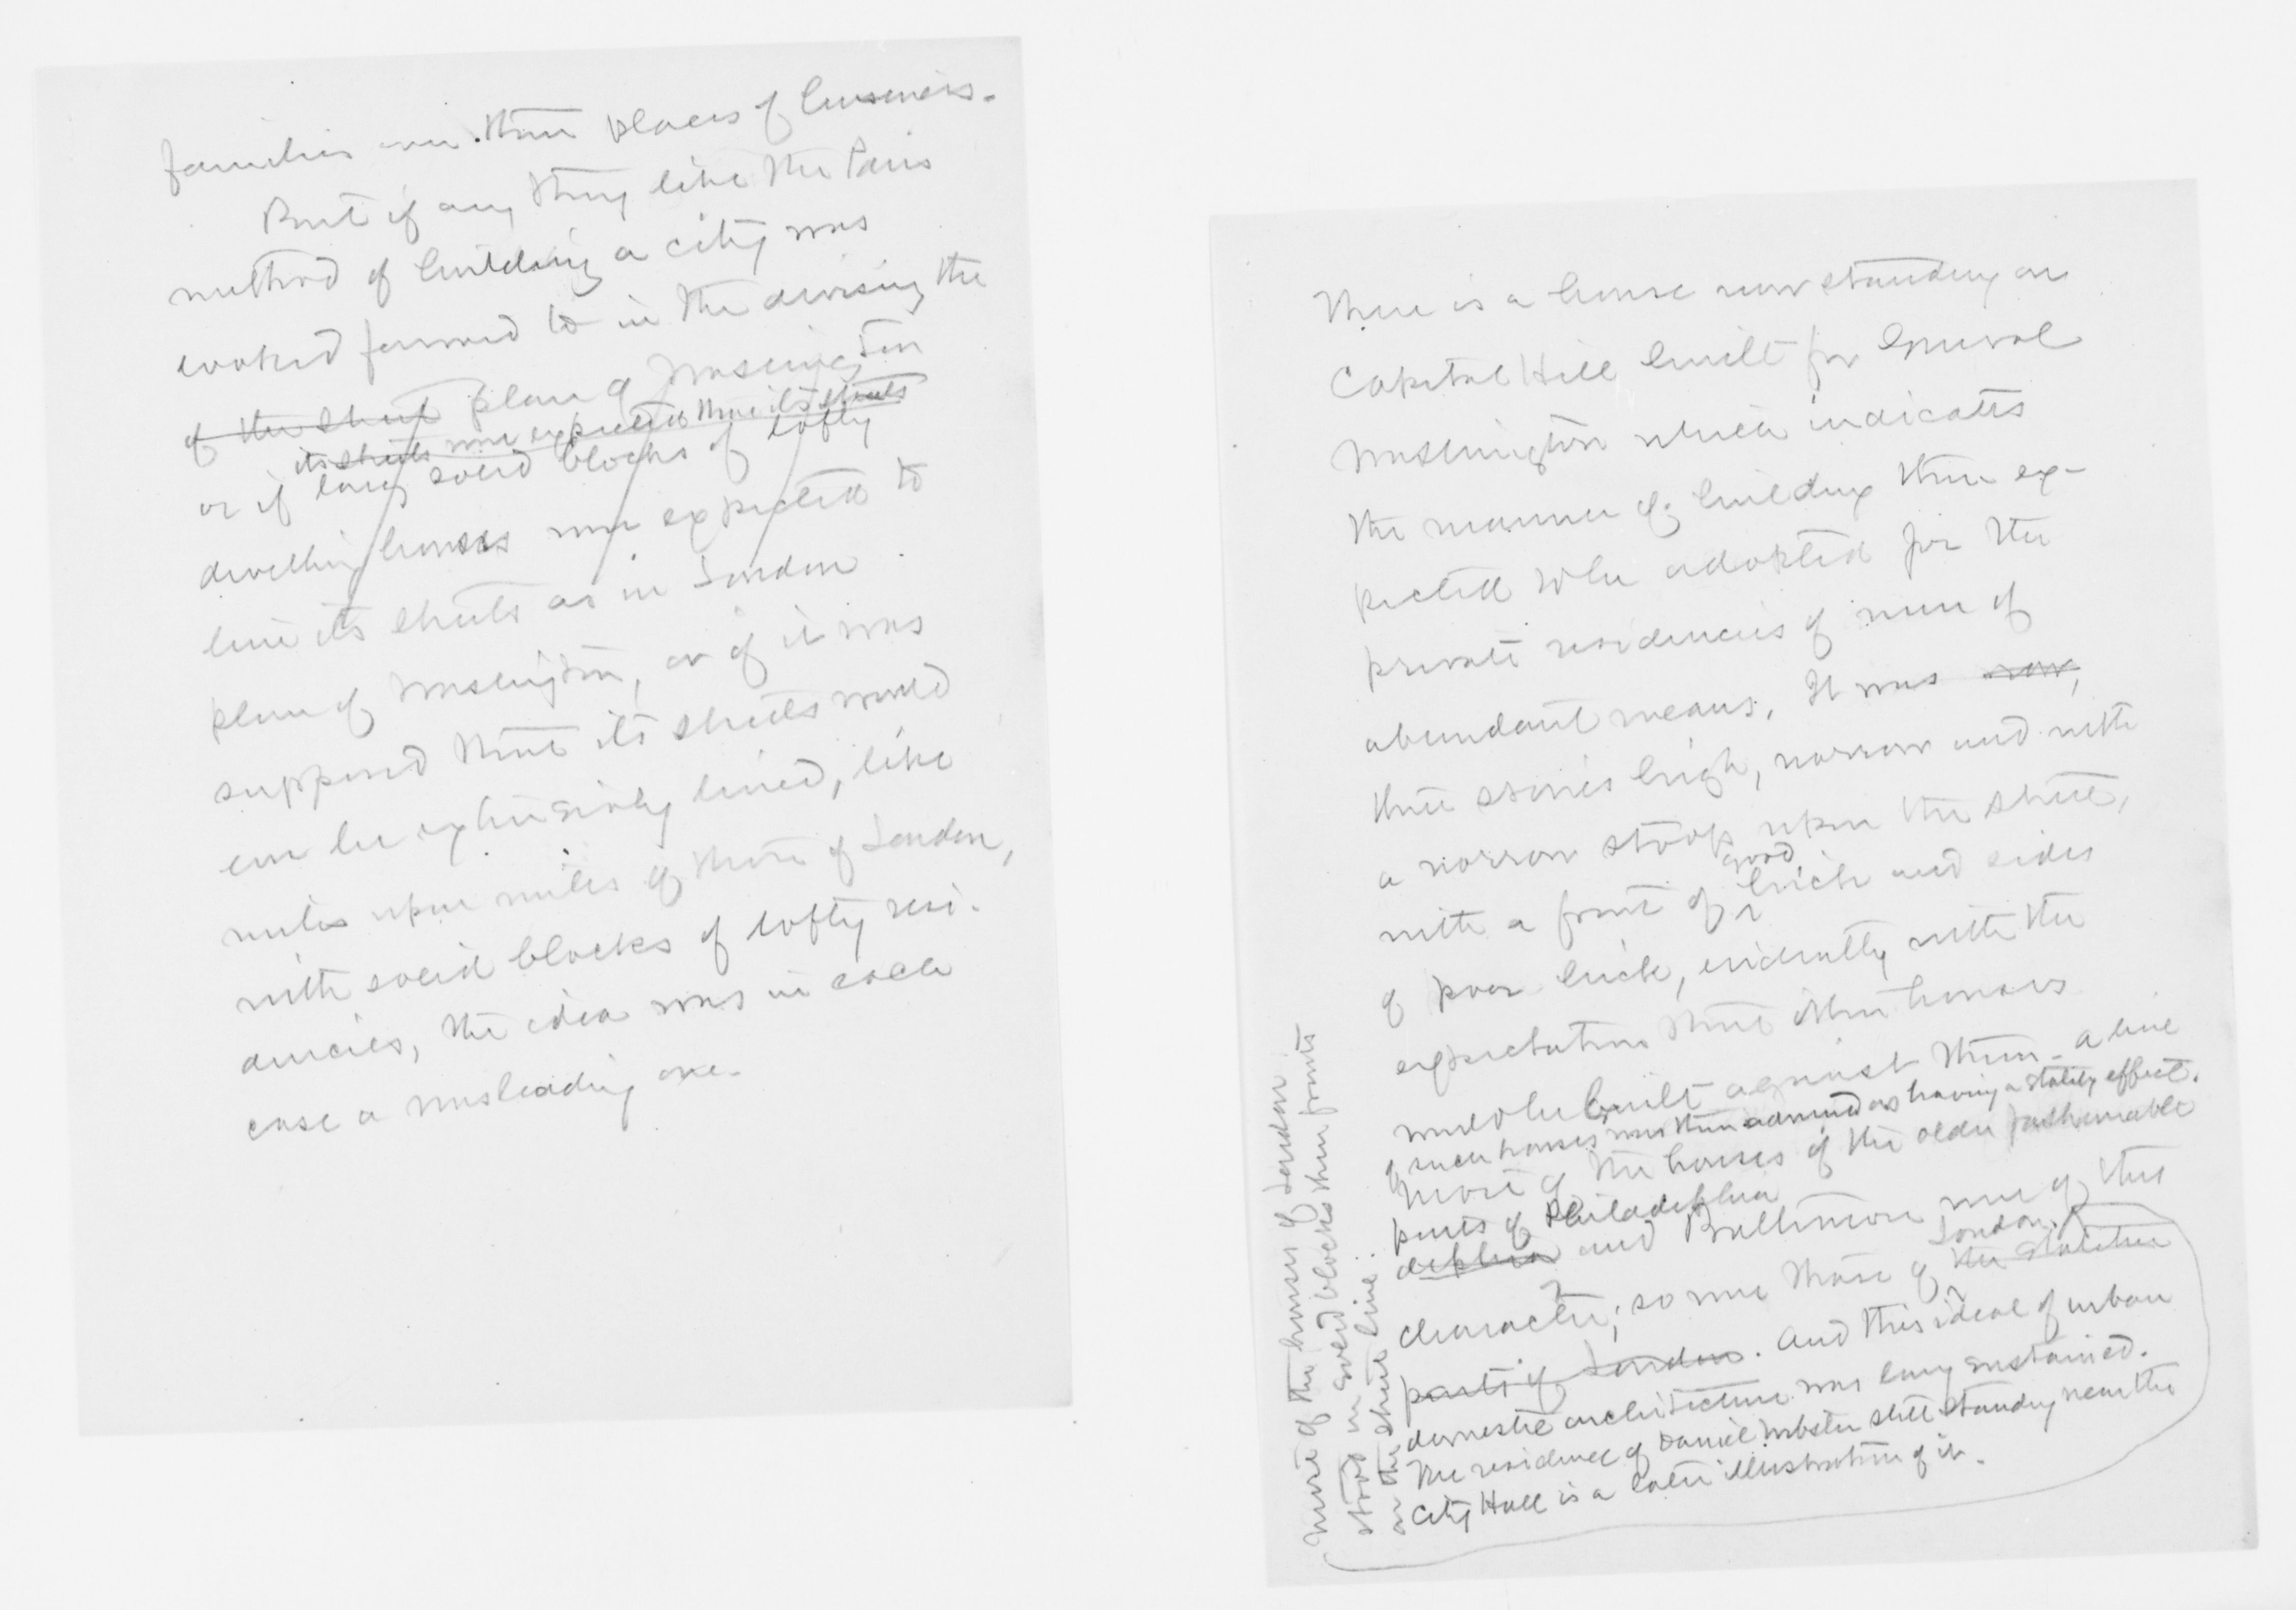 families over their places of business.
But if any thing like the Paris
method of building a city was
looked forward to in the devising the
of the street plan of Washington
its streets were expected that its streets
or if long solid blocks of lofty
dwelling houses were expected to
line its streets as in London
plan of Washington, or if it was
supposed that its streets would
ever be extensively lined, like
miles upon miles of those of London,
with solid blocks of lofty resi-
dencies, the idea was in each
case a misleading one.
There is a house now standing on
Capitol Hill built for General
Washington which indicates
the manner of building then ex-
pected to be adopted for the
private residencies of men of
abundant means. It was
three stories high, narrow and with
a narrow stoop upon the street,
good
with a front of brick and sides
of poor brick, evidently with the
expectation that other houses
would be built against them - a line
of such houses was then admired as having a stately effect.
Most of the houses of the older fashionable
parts of Philadelphia
delphia and Baltimore were of this
London.
character; so were those of the statelier
parts of London. And this ideal of urban
domestic architecture was long sustained.
The residence of Daniel Webster still standing near the
City Hall is a later illustration of it.
Most of the houses of London
stood in solid blocks their fronts
on the street line.